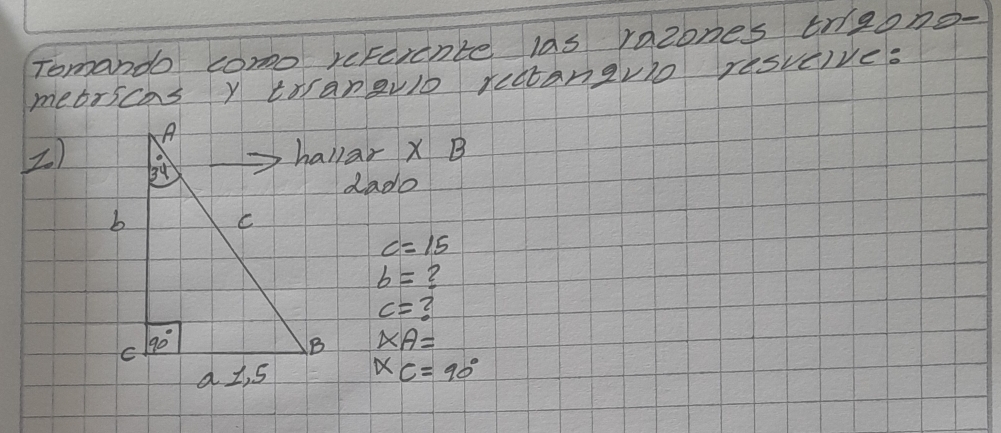 Tomando como referente las razones trigono-
metricas y triangulo rectangulo resuelve:
1.)
A
34°
→ hallar ∡ B
dado
b
c
c=15
b=?
c=?
∡A=
∡C=90°
C
90°
B
a 1,5